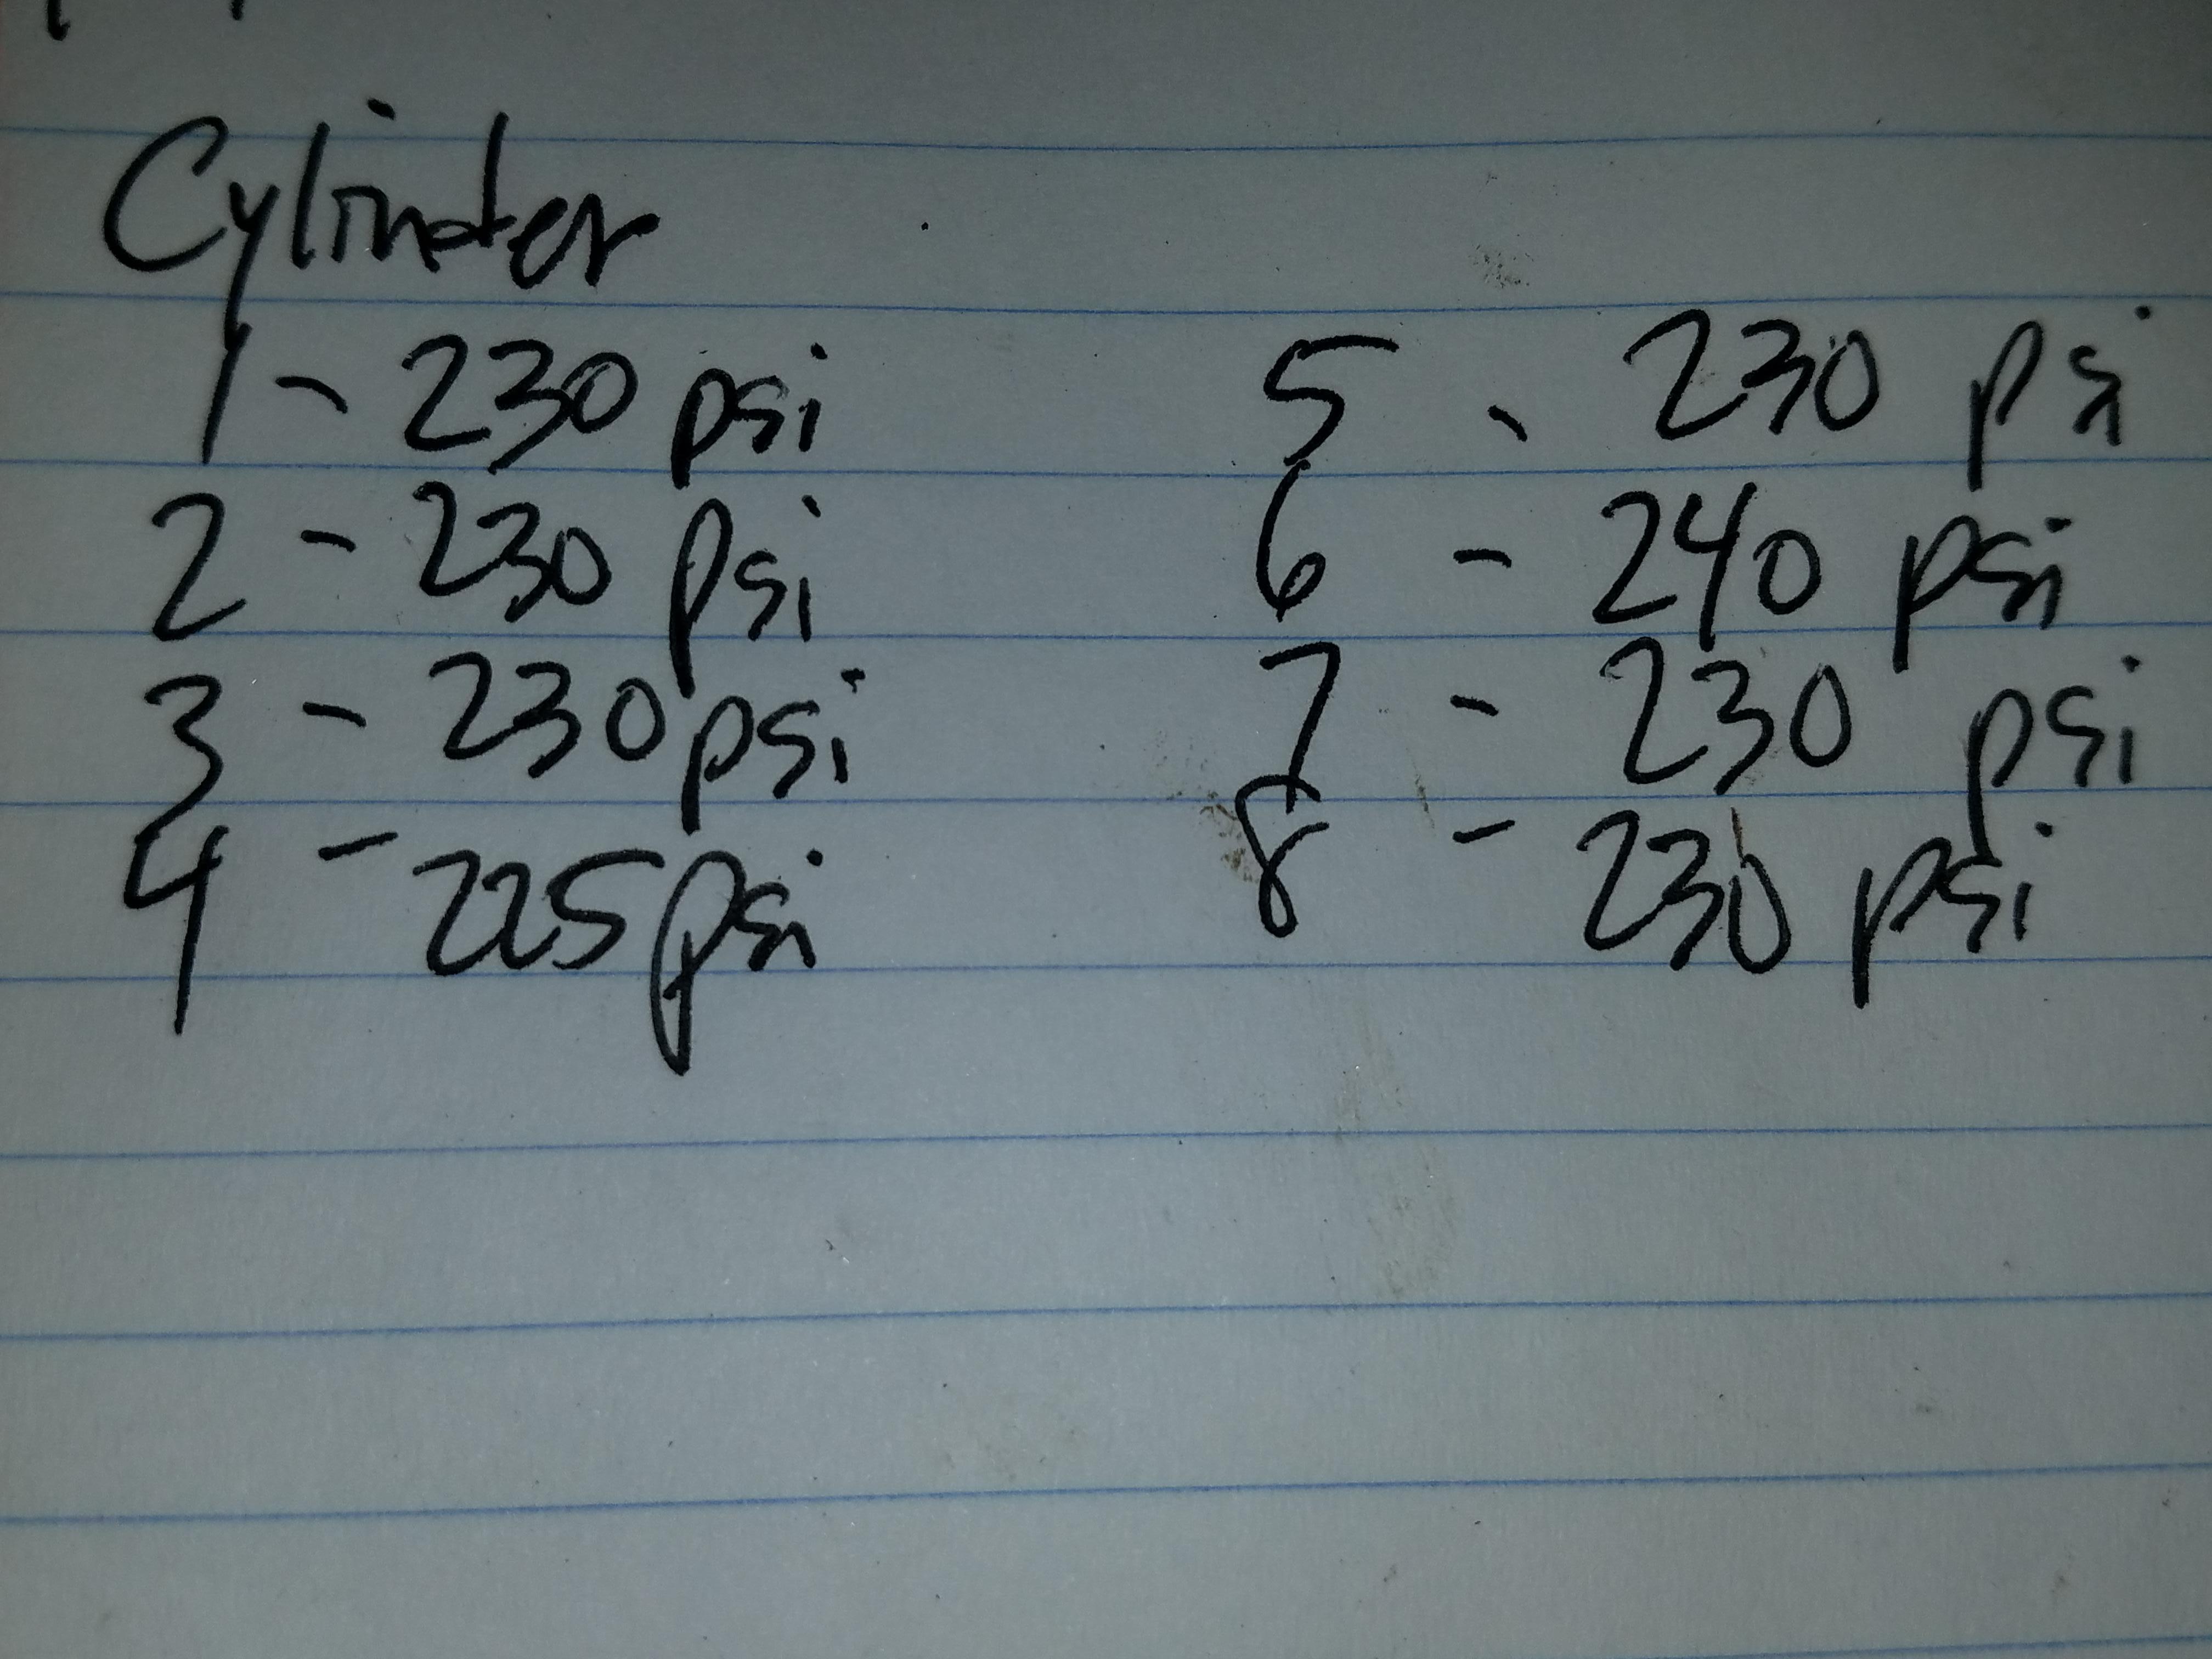 Cylinder
1 - 230 psi
2 - 230 psi
3 - 230 psi
4 - 225 psi
5 - 230 psi
6 - 240 psi
7 - 230 psi
8 - 230 psi